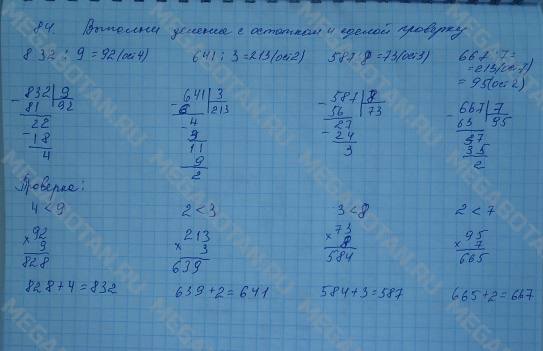 84. Выполни деление с остатком и сделай проверку
832 : 9 = 92 (ост 4) 641 : 3 = 213 (ост 2) 587 : 8 = 73 (ост 3) 667 : 7 =
= 95 (ост 2)
832 | 9 641 | 3 587 | 8 667 | 7
81 92 6 213 56 73 63 95
22 4 27 37
18 3 24 35
4 11 3 2
9
2
Проверка:
4 < 9 2 < 3 3 < 8 2 < 7
92 213 73 95
× 9 × 3 × 8 × 7
828 639 584 665
828 + 4 = 832 639 + 2 = 641 584 + 3 = 587 665 + 2 = 667
MEGABOTAN.RU